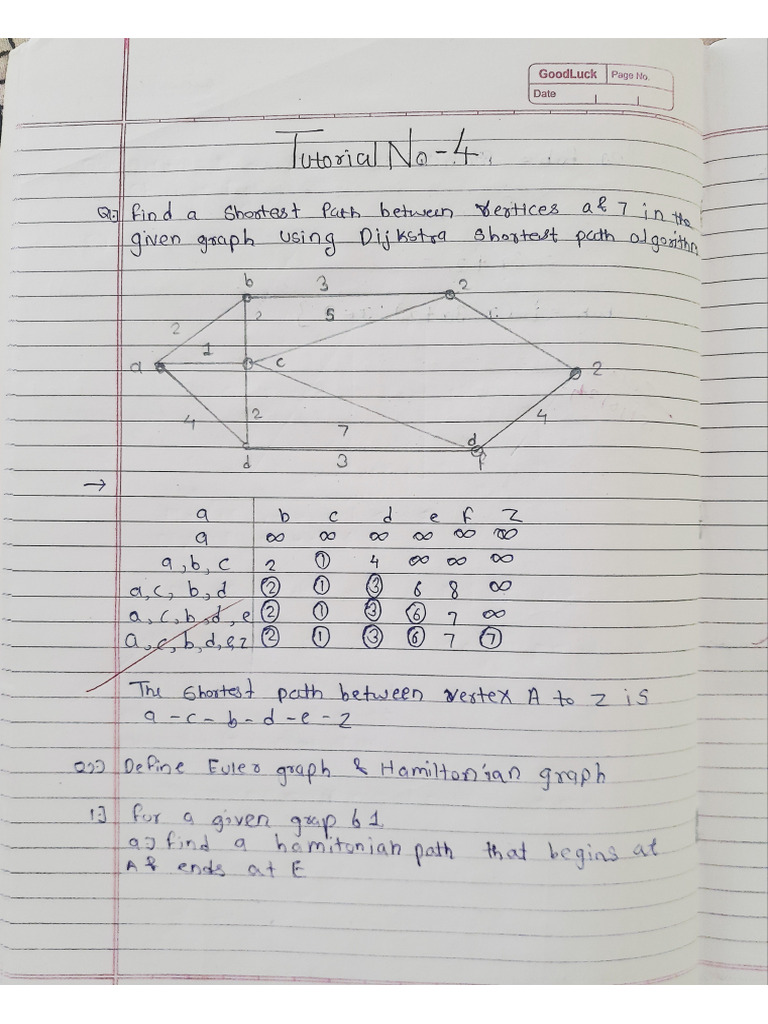 GoodLuck Page No.
Date
Tutorial No - 4
Q1) find a Shortest Path between vertices a & 7 in the
given graph using Dijkstra Shortest path algorithm
b 3 2
2 2 5
1
a c 2
4 2 7 4
d
d 3 f
→
a b c d e f Z
a ∞ ∞ ∞ ∞ ∞ ∞
a, b, c 2 ① 4 ∞ ∞ ∞
a, c, b, d ② ① ③ 6 8 ∞
a, c, b, d, e ② ① ③ ⑥ 7 ∞
a, c, b, d, e, z ② ① ③ ⑥ 7 ⑦
The Shortest path between vertex A to z is
a - c - b - d - e - z
Q2) Define Euler graph & Hamiltonian graph
1] for a given grap 61
a) find a hamitonian path that begins at
A & ends at E